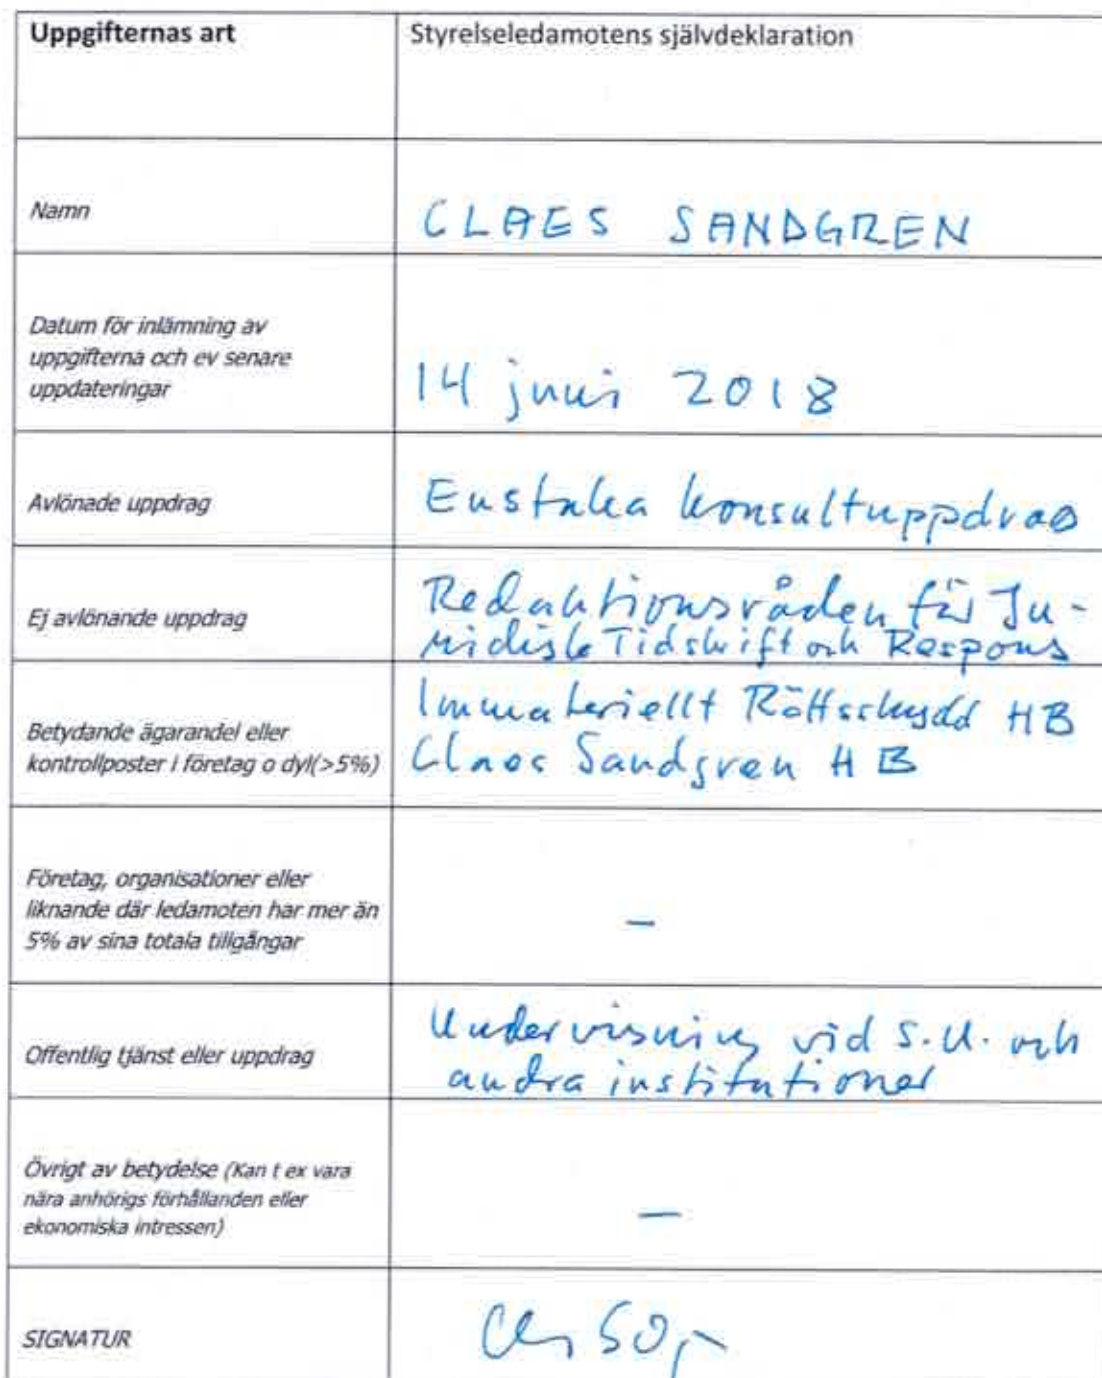 Uppgifternas art
Styrelseledamotens självdeklaration
Namn
CLAES SANDGREN
Datum för inlämning av
uppgifterna och ev senare
uppdateringar
14 juni 2018
Avlönade uppdrag
Enstaka konsultuppdrag
Ej avlönande uppdrag
Redaktionsråden för Ju-
ridisk Tidskrift och Respons
Betydande ägarandel eller
kontrollposter i företag o dyl(>5%)
Immateriellt Rättsskydd HB
Claes Sandgren HB
Företag, organisationer eller
liknande där ledamoten har mer än
5% av sina totala tillgångar
–
Offentlig tjänst eller uppdrag
Undervisning vid S.U. och
andra institutioner
Övrigt av betydelse (Kan t ex vara
nära anhörigs förhållanden eller
ekonomiska intressen)
–
SIGNATUR